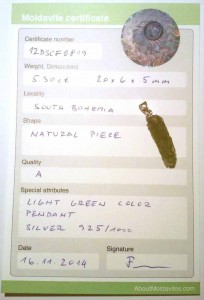 Moldavite certificate
Certificate number
12DSCF0819
Weight, Dimensions
5.30ct 20x6x5mm
Locality
SOUTH BOHEMIA
Shape
NATURAL PIECE
Quality
A
Special attributes
LIGHT GREEN COLOR
PENDANT
SILVER 925/1000
Date
Signature
16.11.2014
AboutMoldavites.com